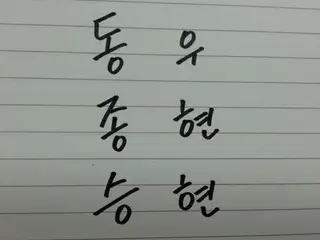 동 우
종 현
승 현